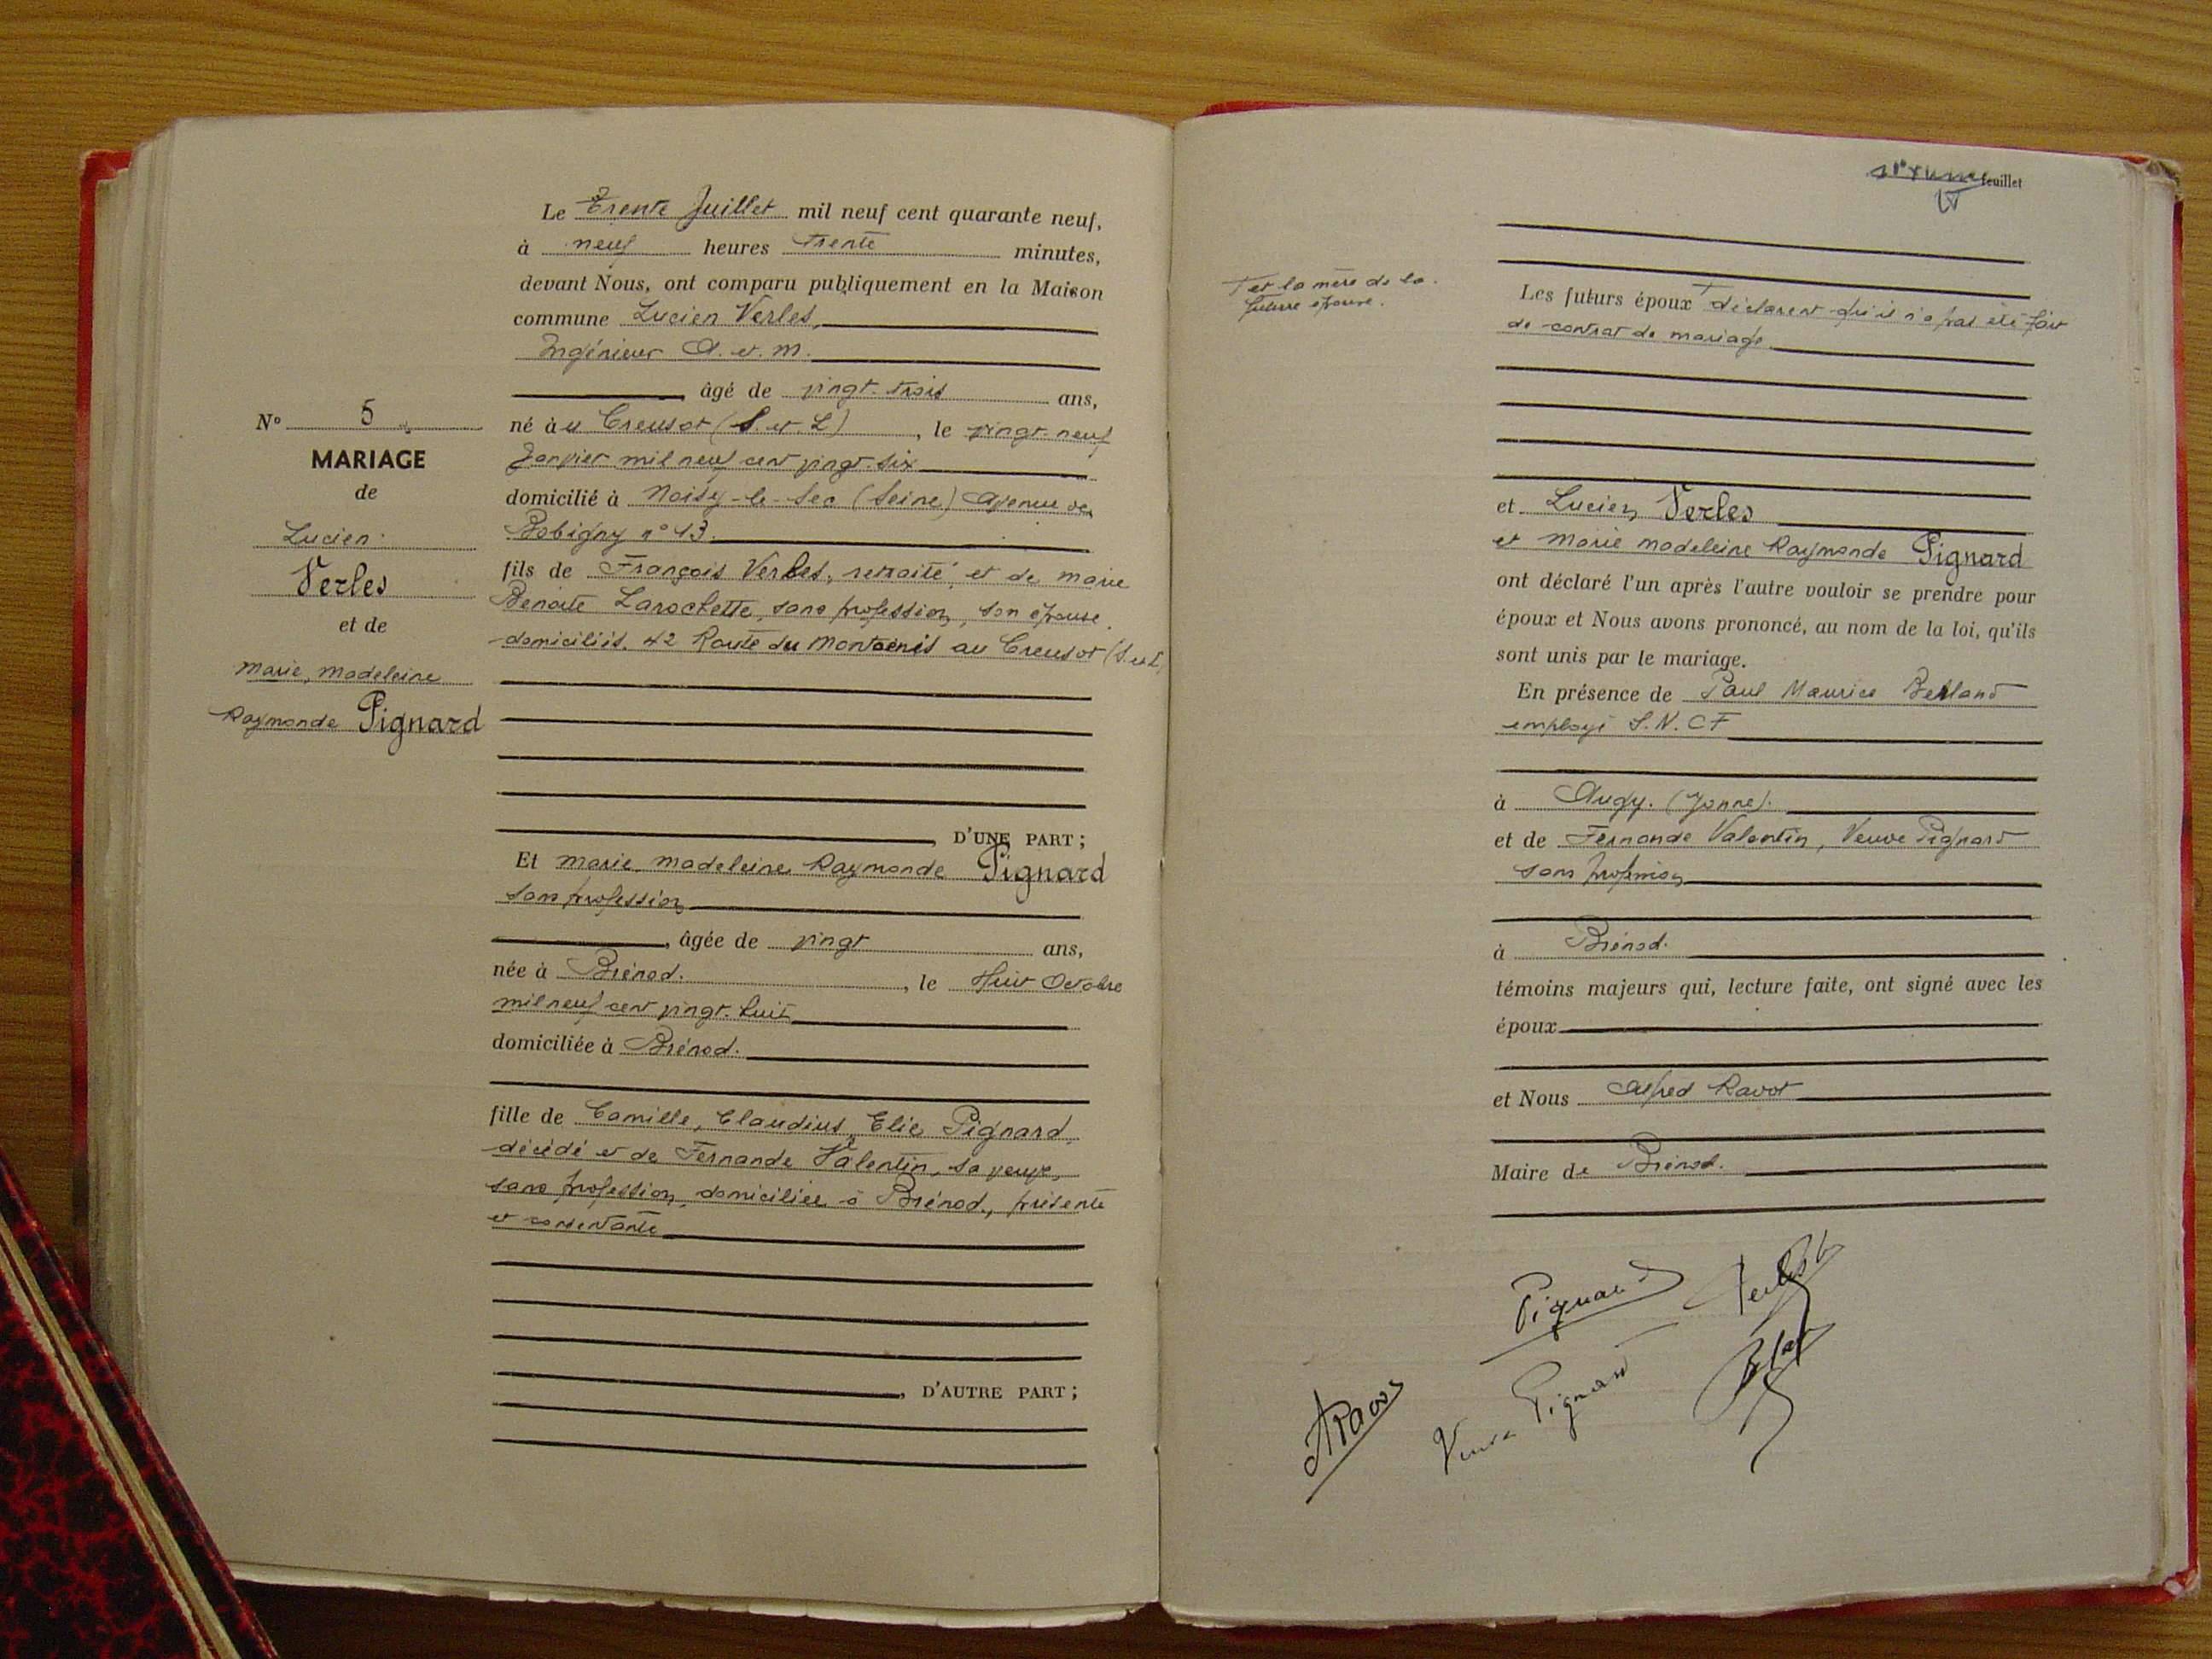 Le Trente Juillet mil neuf cent quarante neuf,
à neuf heures trente minutes,
devant Nous, ont comparu publiquement en la Maison
commune Lucien Verles,
Ingénieur A. et M.
âgé de vingt-trois ans,
né au Creusot (S. et L) , le vingt-neuf
Janvier mil neuf cent vingt-six
domicilié à Noisy-le-Sec (Seine) Avenue de
Bobigny n° 43.
fils de François Verles, retraité, et de marie
Benoite Larochette, sans profession, son épouse.
domiciliés. 42 Route du Montcenis au Creusot (S. et L)
D'UNE PART ;
N° 5
MARIAGE
de
Lucien
Verles
et de
Marie, Madeleine
Raymonde Pignard
Et Marie, Madeleine Raymonde Pignard
sans profession
, âgée de vingt ans,
née à Brénod. , le Huit Octobre
mil neuf cent vingt-huit
domiciliée à Brénod.
fille de Camille, Claudius, Elie Pignard,
décédé et de Fernande Valentin, sa veuve,
sans profession, domiciliée à Brénod, présente
et consentante
, D'AUTRE PART ;
feuillet
+ et la mère de la
future épouse.
Les futurs époux + déclarent qu'il n'a pas été fait
de contrat de mariage.
et Lucien Verles
et Marie Madeleine Raymonde Pignard
ont déclaré l'un après l'autre vouloir se prendre pour
époux et Nous avons prononcé, au nom de la loi, qu'ils
sont unis par le mariage.
En présence de Paul Maurice
employé S.N.C.F
à Augy. (Yonne).
et de Fernande Valentin, Veuve Pignard
sans profession
à Brénod.
témoins majeurs qui, lecture faite, ont signé avec les
époux
et Nous Alfred Ravot
Maire de Brénod.
Pignard
Veuve Pignard
ARavot